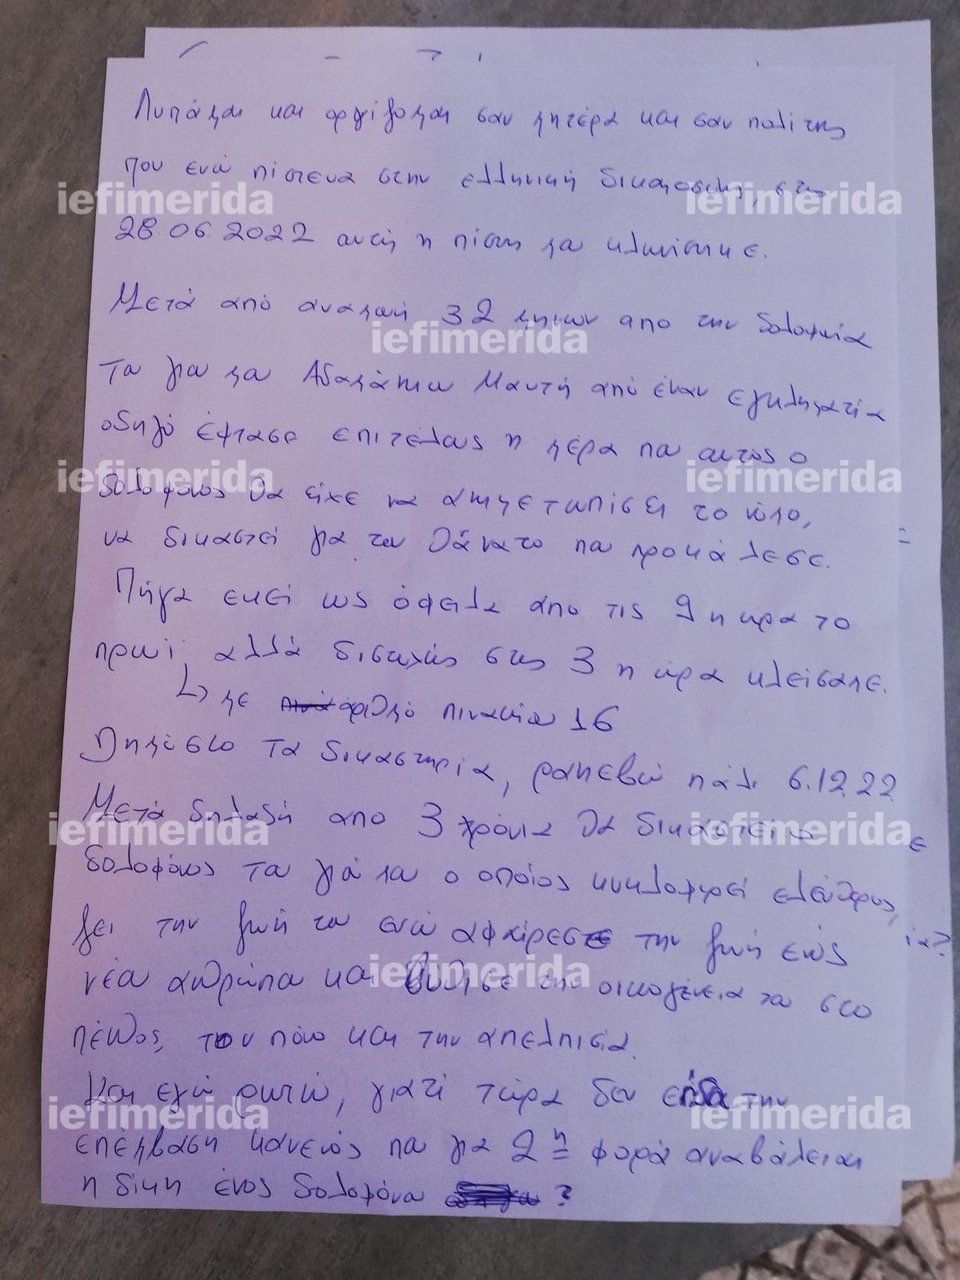 Λυπάμαι και οργίζομαι σαν μητέρα και σαν πολίτης
που ενώ πίστευα στην ελληνική δικαιοσύνη, στις
28 06 2022 αυτή η πίστη μου κλωνίστηκε.
Μετά από αναμονή 32 μηνών απο την δολοφονία
του γιου μου Αδαμάντιου Μαντή από έναν εγκληματία
οδηγό έφτασε επιτέλους η μέρα που αυτος ο
δολοφόνος θα είχε να αντιμετωπίσει το νόμο,
να δικαστεί για τον θάνατο που προκάλεσε.
Πήγα εκεί ως όφειλα απο τις 9 η ώρα το
πρωί, αλλά δυστυχώς στις 3 η ώρα κλείσαμε.
↳ με αριθμό πινακίου 16
Δημόσιο τα δικαστηρία, ραντεβού πάλι 6.12 22
Μετά δηλαδή απο 3 χρόνια θα δικαστεί ο
δολοφόνος του γιού μου ο οποίος κυκλοφορεί ελεύθερος,
ζει την ζωή του ενώ αφαίρεσε την ζωή ενός
νέου ανθρώπου και βύθισε την οικογένεια του στο
πένθος, τον πόνο και την απελπισία.
Και εγώ ρωτώ, γιατί τώρα δεν είδα την
επέμβαση κανενός που για 2η φορά αναβάλεται
η δίκη ένος δολοφόνου ?
ε
ία?
iefimerida
iefimerida
iefimerida
iefimerida
iefimerida
iefimerida
iefimerida
iefimerida
iefimerida
iefimerida